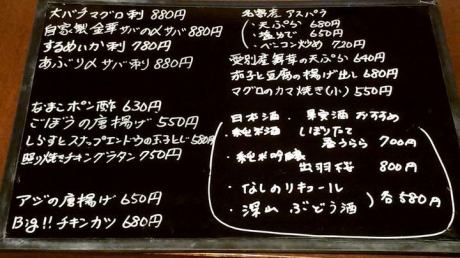 大バチマグロ刺 880円
自家製金華サバの〆サバ 880円
するめいか刺 780円
あぶり〆サバ刺 880円
なまこポン酢 630円
ごぼうの唐揚げ 550円
しらすとスナップエンドウの玉子とじ 580円
照り焼きチキングラタン 750円
アジの唐揚げ 650円
Big!! チキンカツ 680円
名寄産アスパラ
・天ぷら 680円
・塩ゆで 650円
・ベーコン炒め 720円
愛別産舞茸の天ぷら 640円
茄子と豆腐の揚げ出し 680円
マグロのカマ焼き(小) 550円
日本酒・果実酒 おすすめ
・純米酒 しぼりたて
春うらら 700円
・純米吟醸
出羽桜 800円
・なしのリキュール
・深山 ぶどう酒 ) 各580円